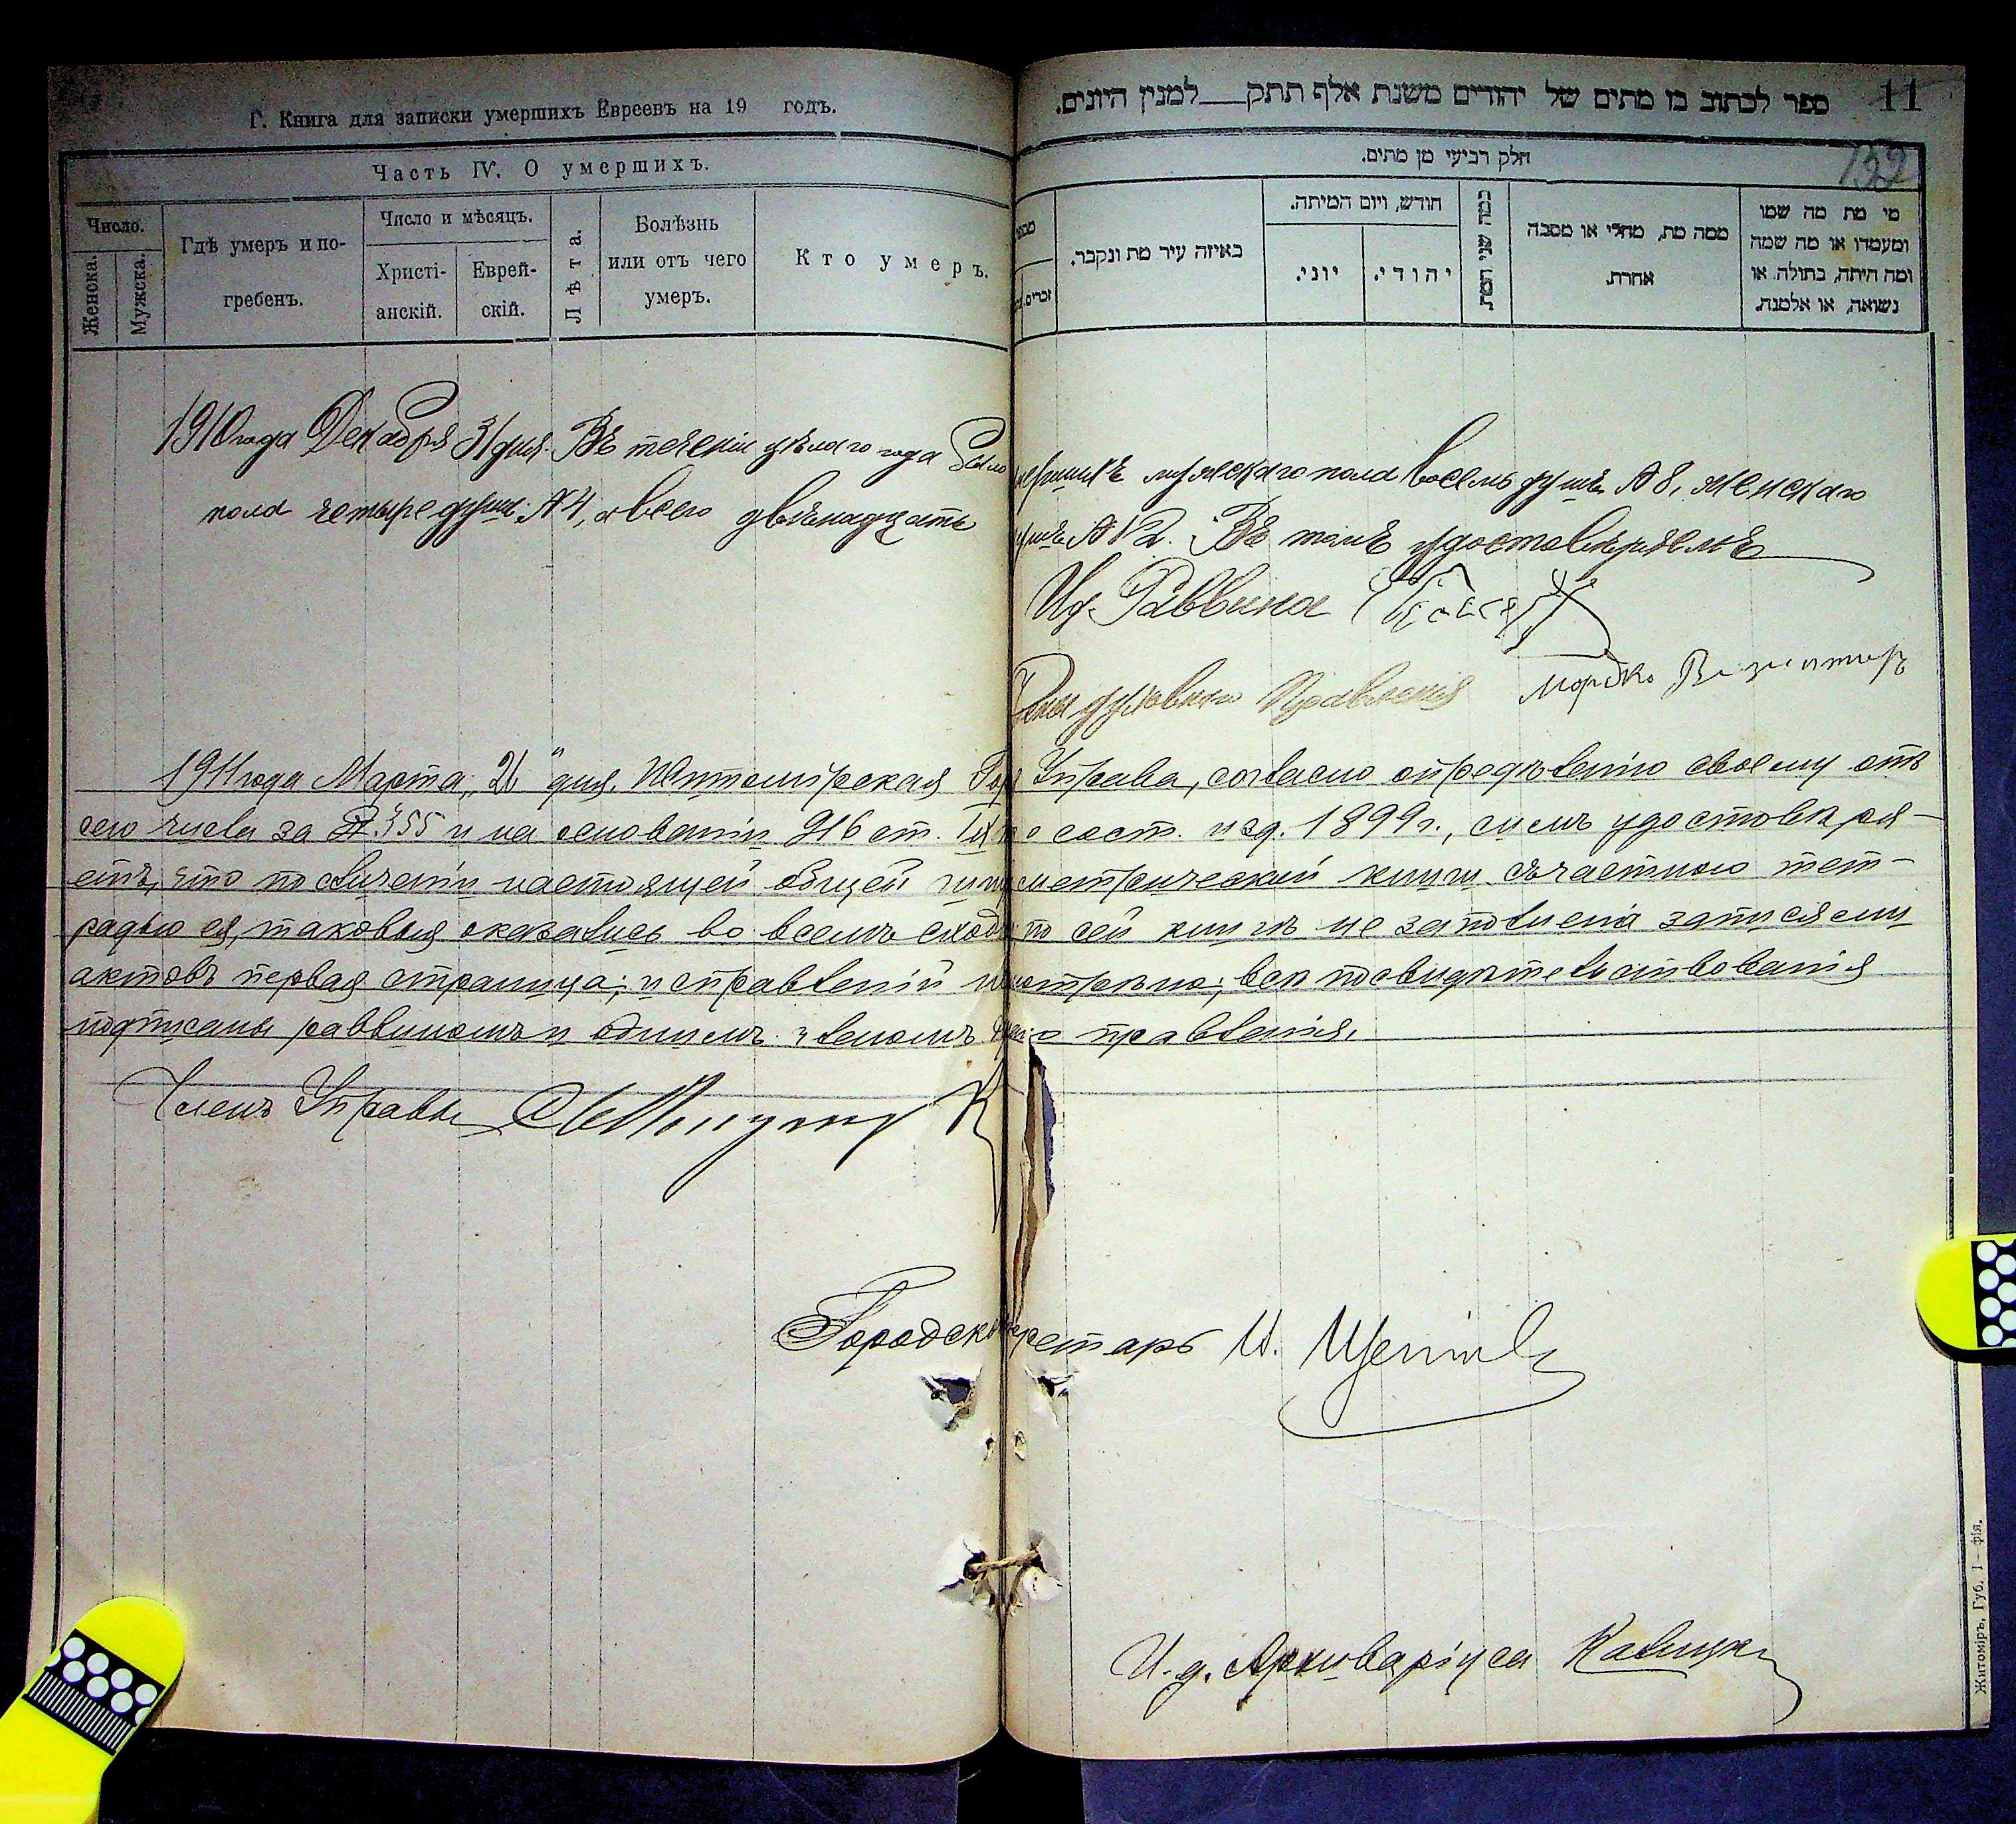 Г. Книга для записки умершихъ Евреевъ на 19 годъ.
Часть IV. О умершихъ.
Число.
Женска.
Мужска.
Гдѣ умеръ и по-
гребенъ.
Число и мѣсяцъ.
Христі-
анскій.
Еврей-
скій.
Лѣта.
Болѣзнь
или отъ чего
умеръ.
Кто умеръ.
ספר לכתוב בו מתים של יהודים משנת אלף תתק למנין היונים.
11
132
חלק רביעי מן מתים.
זכרים.
באיזה עיר מת ונקבר.
חודש, ויום המיתה.
יוני.
יהודי.
כמה שני המת
ממה מת, מחלי או מסבה
אחרת.
מי מת מה שמו
ומעמדו או מה שמה
ומה היתה, בתולה או
נשואה, או אלמנה.
1910 года Декабря 31 дня. Въ теченіи цѣлаго года было умершихъ мужескаго пола восемь душъ № 8, женскаго
пола четыре души № 4, а всего двѣнадцать душъ № 12. Въ томъ удостовѣряемъ
И.д. Раввина
Члены духовнаго Правленія Мордко
1911 года Марта „21" дня. Житомирская Гор. Управа, согласно опредѣленію своему отъ
сего числа за № 355 и на основаніи 916 ст. IX т. о сост. изд. 1899 г., симъ удостовѣря-
етъ, что по свѣреніи настоящей общей метрической книги съ частною тет-
радью ея, таковыя оказались во всемъ сходны по сей книгѣ не заполнена записями
актовъ первая страница; исправленій всѣ посвидѣтельствованія
подписаны раввиномъ и однимъ членомъ правленія.
Членъ Управы
Городской Секретарь И.
И. д. Архиваріуса
Житоміръ, Губ. Т—фія.